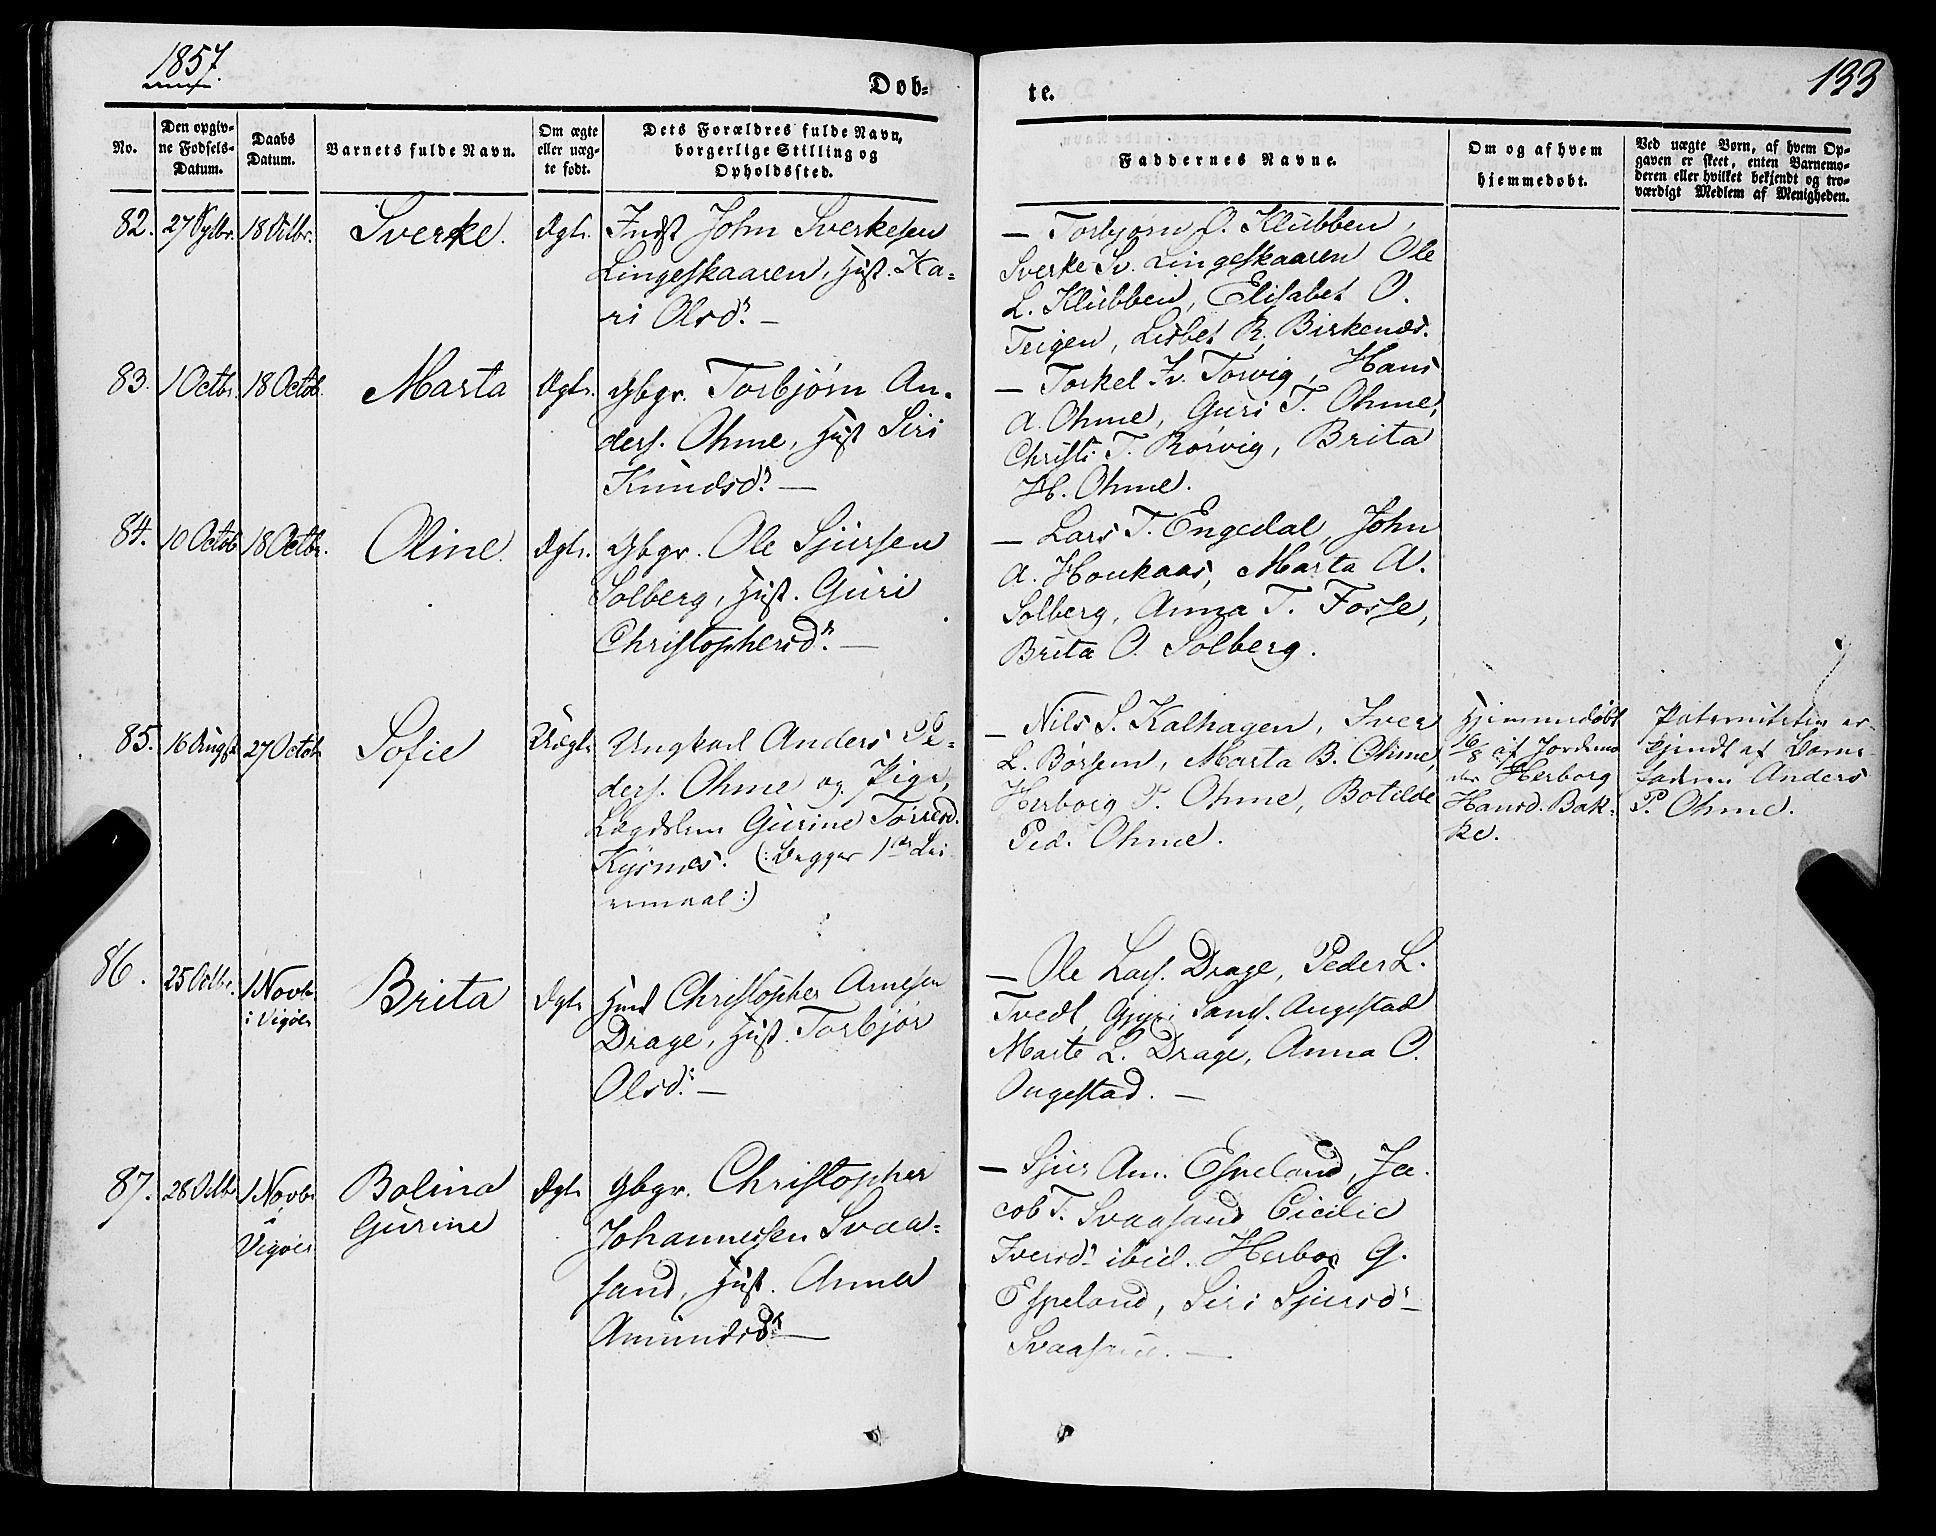 1857.
133
Døb-
te.
No.
Den opgiv-
ne Fødsels-
Datum.
Daabs
Datum.
Barnets fulde Navn.
Om ægte
eller uæg-
te født.
Dets Forældres fulde Navn,
borgerlige Stilling og
Opholdssted.
Faddernes Navne.
Om og af hvem
hjemmedøbt.
Ved uægte Børn, af hvem Op-
gaven er skeet, enten Barnemo-
deren eller hvilket bekjendt og tro-
værdigt Medlem af Menigheden.
82.
18 Octbr.
Sverke.
Ægte.
Indst John Sverkesen
Lingeskaaren, Hust. Ka-
ri Olsdr. —
— Torbjørn O. Klubben,
Sverke Sv. Lingeskaaren Ole
L. Klubben, Elisabet O.
Teigen, Lisbet R. Birkenæs.
83.
1 Octbr.
18 Octob.
Marta
Ægte.
Gbgr. Torbjørn An-
ders. Ohme, Hust Siri
Knudsdr. —
— Torkel Iv. Torvig, Hans
A. Ohme, Guri T. Ohme,
Christi T. Rørvig, Brita
H. Ohme.
84.
10 Octob
18 Octbr.
Oline.
Ægte.
Gbgr. Ole Sjursen
Solberg, Hust. Guri
Christophersdr. —
— Lars T. Engedal, John
A. Houkaas, Marta A.
Solberg, Anna T. Fosse,
Brita O. Solberg.
85.
16 August
27 Octob
Sofie
Uægte
Ungkarl Anders Pe-
ders. Ohme og Pige,
Lægdslem Gurine Torresd.
Kysnæs. (: Begges 1ste Lei-
ermaal :)
— Nils S. Kalhagen, Iver
L. Børsem, Marta B. Ohme,
Herborg P. Ohme, Botilde
Ped. Ohme.
Hjemmedøbt
16/8 af Jordemo
der Herborg
Hansd. Bak-
ke.
Paterniteten er-
kjendt af Barne-
faderen Anders
P. Ohme.
86.
25 Octbr.
1 Novbr
i Vigøer
Brita
Ægte
Huusm Christopher Arnesen
Drage, Hust. Torbjør
Olsdr. —
— Ole Lars. Drage, Peder L.
Tvedt, Sams. Angestad
Marte L. Drage, Anna O.
Angestad. —
87.
28 Octbr
1 Novbr
Vigøer
Bolina
Gurine
Ægte
Gbgr. Christopher
Johannessen Svaa-
sand, Hust. Anna
Amundsdr —
— Sjur Am. Espeland, Ja-
cob T. Svaasand, Cicilie
Iversdr ibid. Herbor G.
Espeland, Siri Sjursdr
Svaasand. —